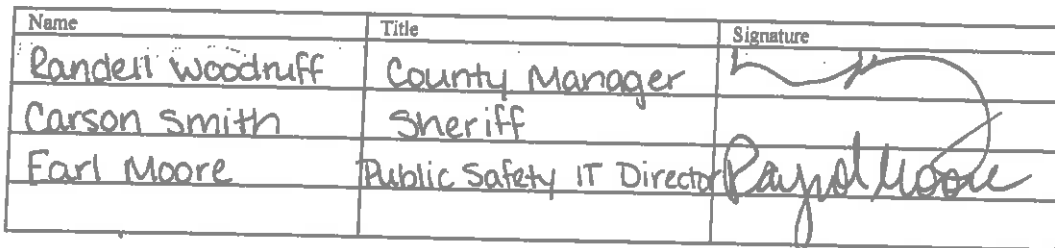 Name Title Signature
Randell Woodruff County Manager
Carson Smith Sheriff
Earl Moore Public Safety IT Director Moore